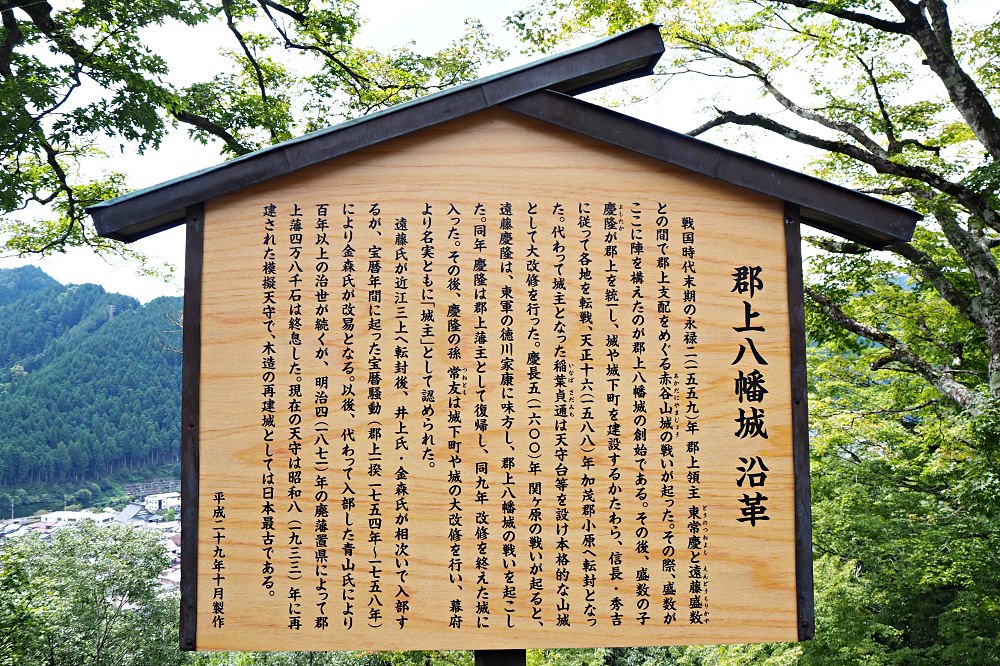 郡上八幡城 沿革
とうのつねよし えんどうもりかず
戦国時代末期の永禄二(一五五九)年 郡上領主 東常慶と遠藤盛数
あかだにやまじょう
との間で郡上支配をめぐる赤谷山城の戦いが起った。その際、盛数が
ここに陣を構えたのが郡上八幡城の創始である。その後、盛数の子
よしたか
慶隆が郡上を統一し、城や城下町を建設するかたわら、信長・秀吉
に従って各地を転戦、天正十六(一五八八)年 加茂郡小原へ転封となっ
いなば さだみち
た。代わって城主となった稲葉貞通は天守台等を設け本格的な山城
として大改修を行った。慶長五(一六〇〇)年 関ヶ原の戦いが起ると、
遠藤慶隆は、東軍の徳川家康に味方し、郡上八幡城の戦いを起こし
た。同年 慶隆は郡上藩主として復帰し、同九年 改修を終えた城に
つねとも
入った。その後、慶隆の孫 常友は城下町や城の大改修を行い、幕府
より名実ともに「城主」として認められた。
遠藤氏が近江三上へ転封後、井上氏・金森氏が相次いで入部す
るが、宝暦年間に起った宝暦騒動(郡上一揆 一七五四年～一七五八年)
により金森氏が改易となる。以後、代わって入部した青山氏により
百年以上の治世が続くが、明治四(一八七一)年の廃藩置県によって郡
上藩四万八千石は終息した。現在の天守は昭和八(一九三三)年に再
建された模擬天守で、木造の再建城としては日本最古である。
平成二十九年十月製作